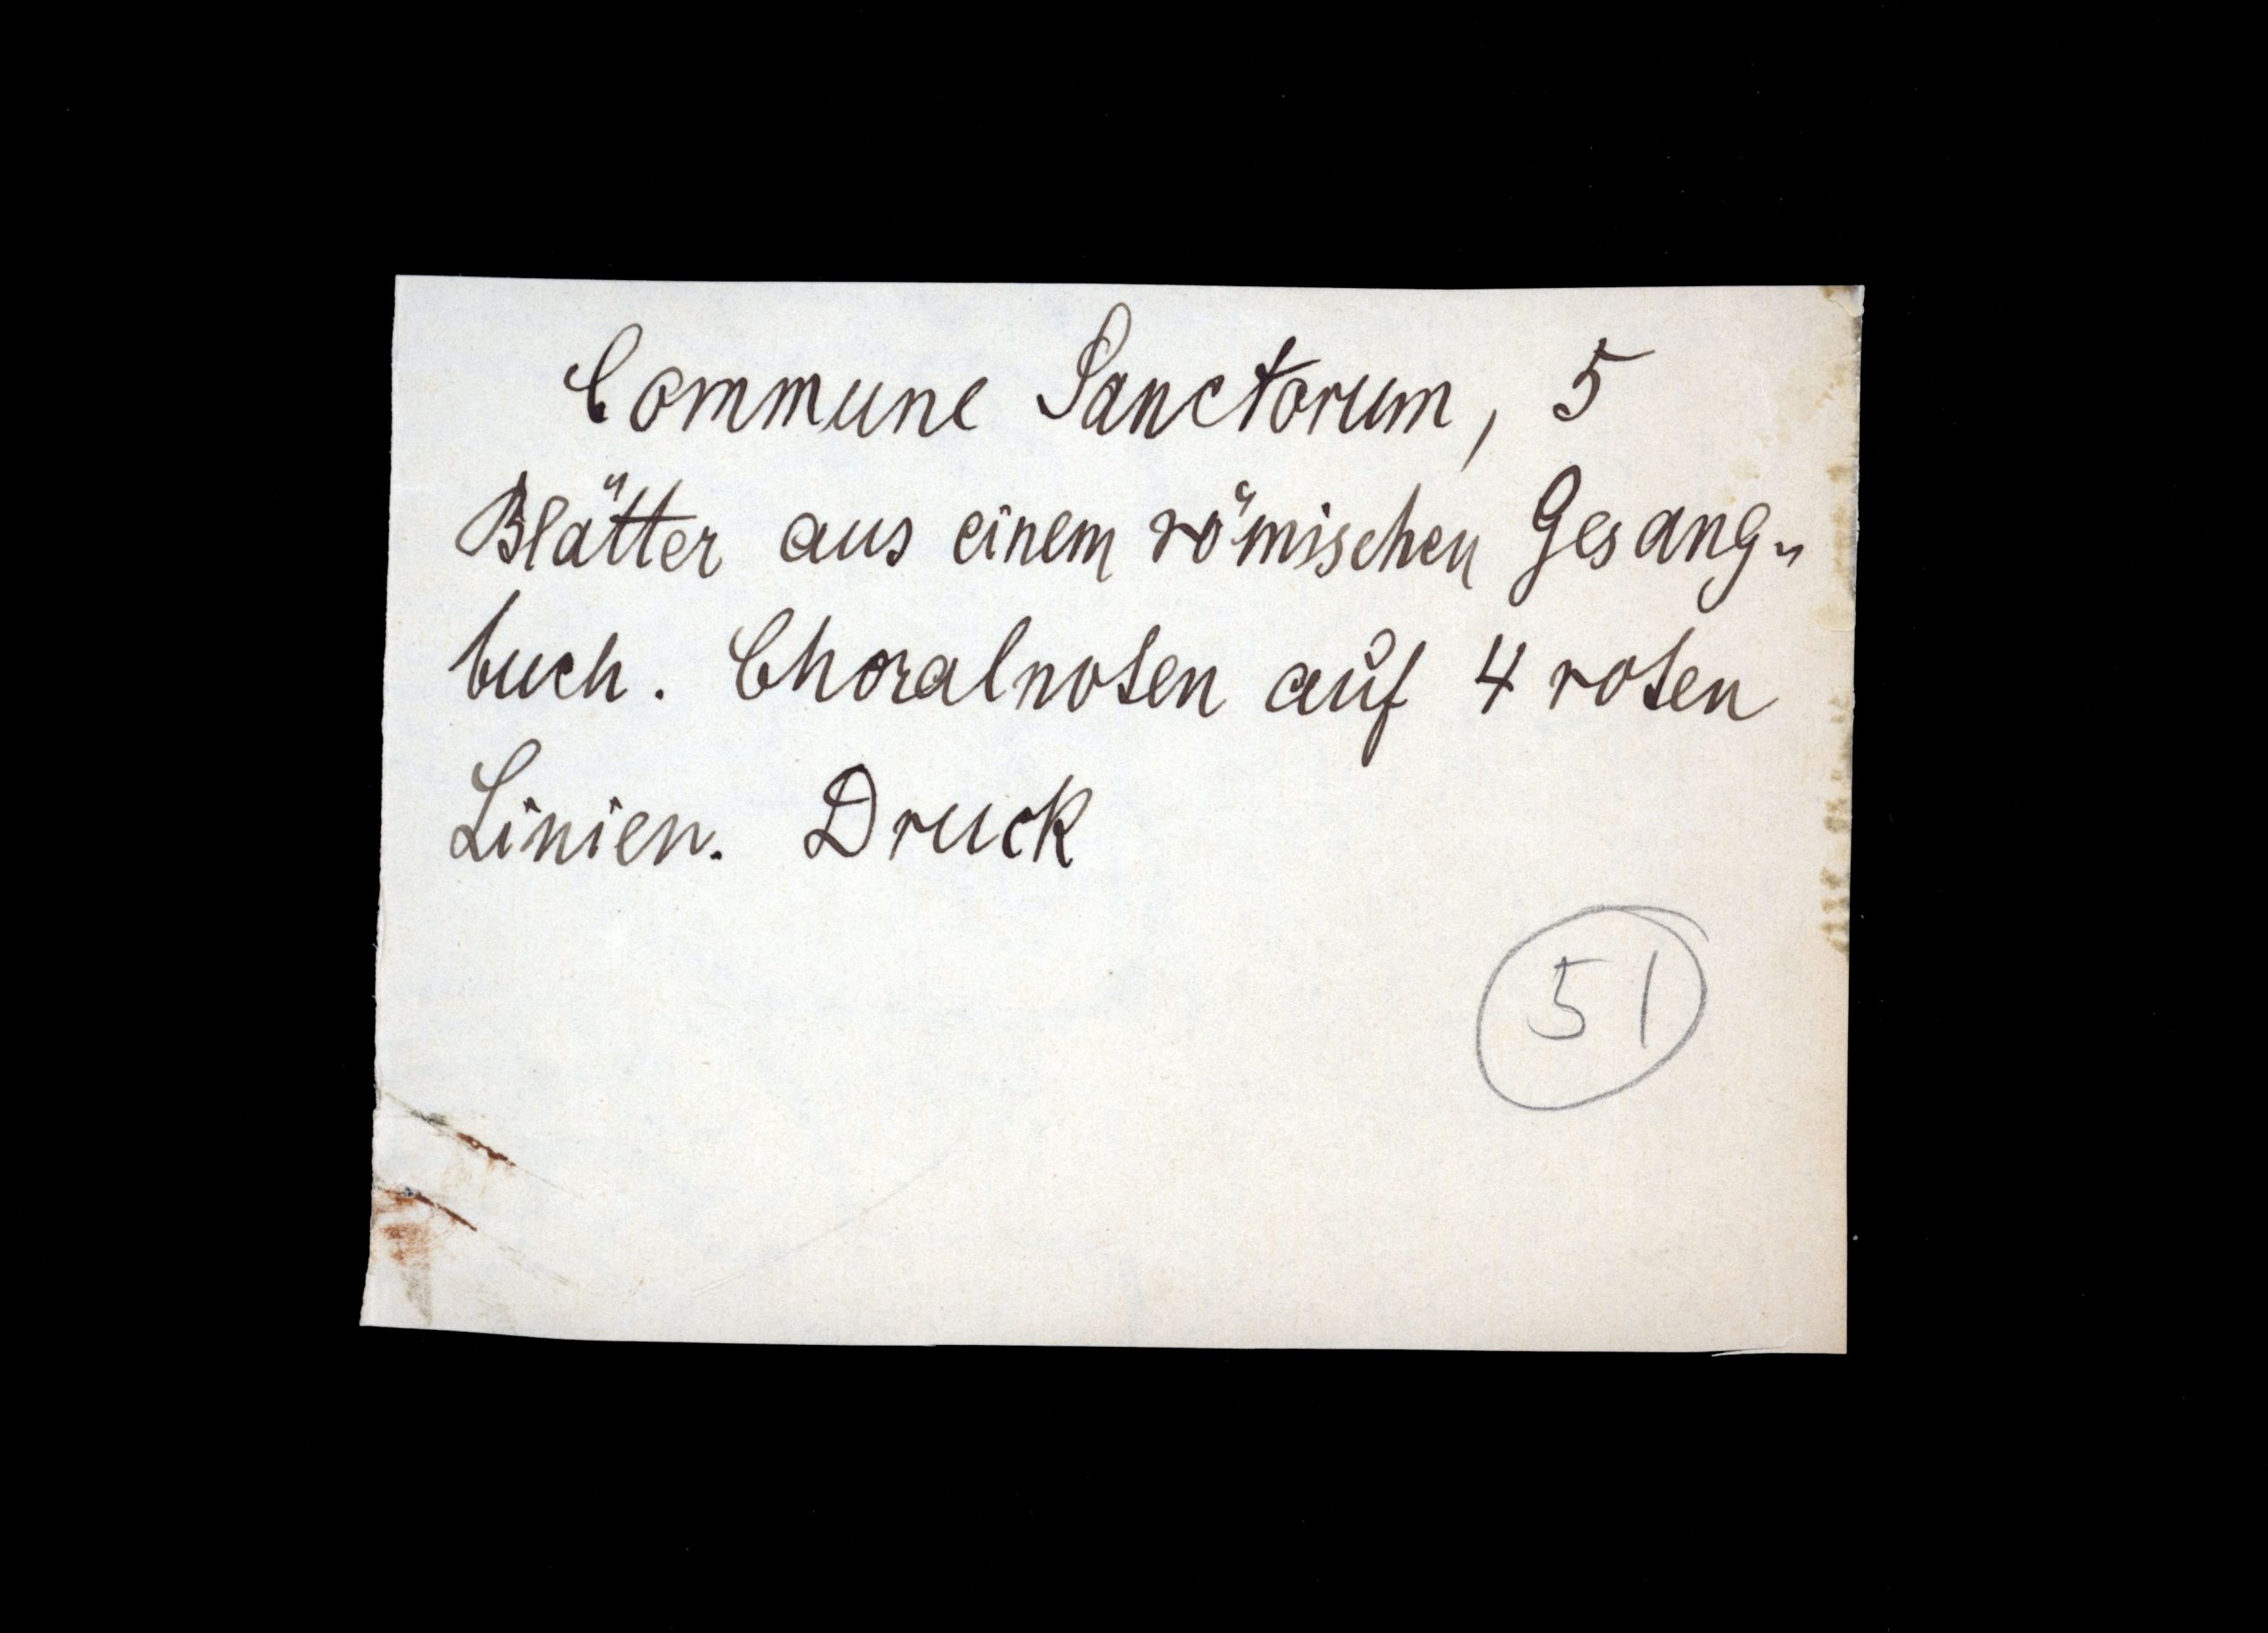 Commune Sanctorum, 5
Blätter aus einem römischen Gesang-
buch. Choralnoten auf 4 roten
Linien. Druck
51